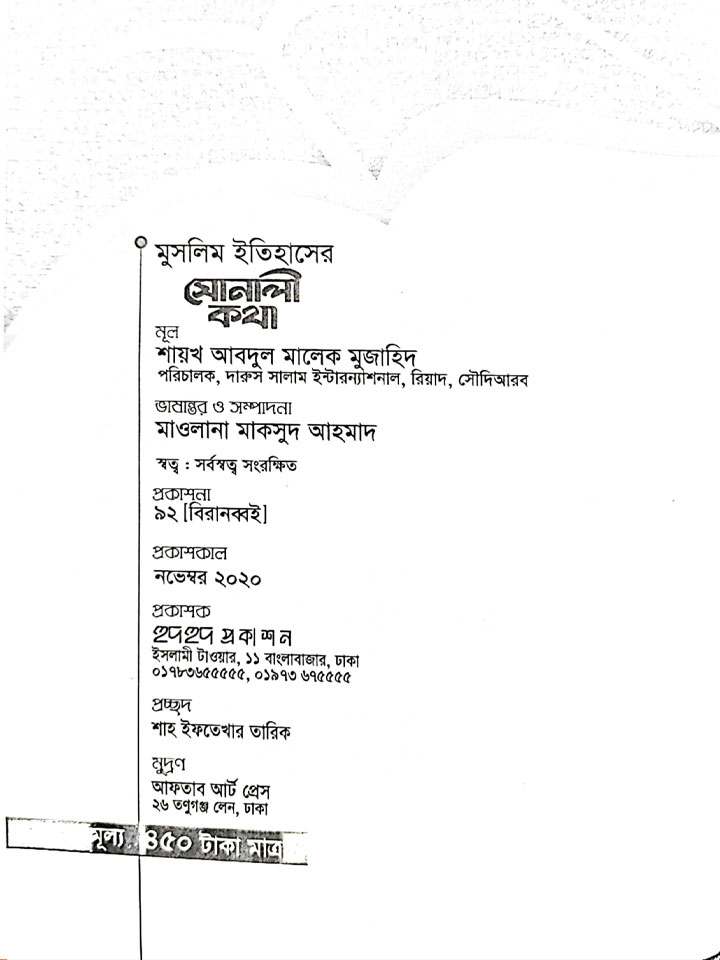 মুসলিম ইতিহাসের
সোনালী
কথা
মূল
শায়খ আবদুল মালেক মুজাহিদ
পরিচালক, দারুস সালাম ইন্টারন্যাশনাল, রিয়াদ, সৌদিআরব
ভাষান্তর ও সম্পাদনা
মাওলানা মাকসুদ আহমাদ
স্বত্ব : সর্বস্বত্ব সংরক্ষিত
প্রকাশনা
৯২ [বিরানব্বই]
প্রকাশকাল
নভেম্বর ২০২০
প্রকাশক
হুদহুদ প্রকাশন
ইসলামী টাওয়ার, ১১ বাংলাবাজার, ঢাকা
০১৭৮৩৬৫৫৫৫৫, ০১৯৭৩ ৬৭৫৫৫৫
প্রচ্ছদ
শাহ ইফতেখার তারিক
মুদ্রণ
আফতাব আর্ট প্রেস
২৬ তণুগঞ্জ লেন, ঢাকা
মূল্য : ৪৫০ টাকা মাত্র